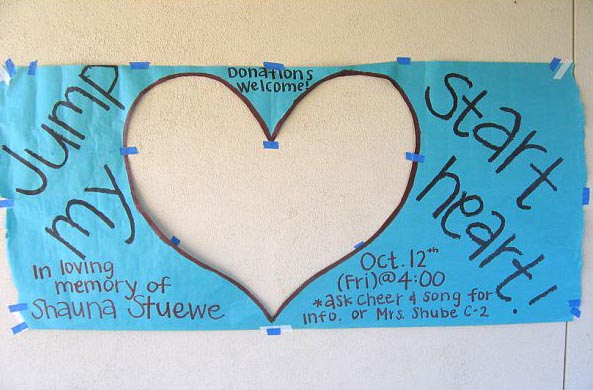 Jump
my
start
heart!
Donations
Welcome!
In loving
memory of
Shauna Stuewe
Oct. 12th
(Fri)@4:00
*ask Cheer & Song for
Info. or Mrs. Shube C-2